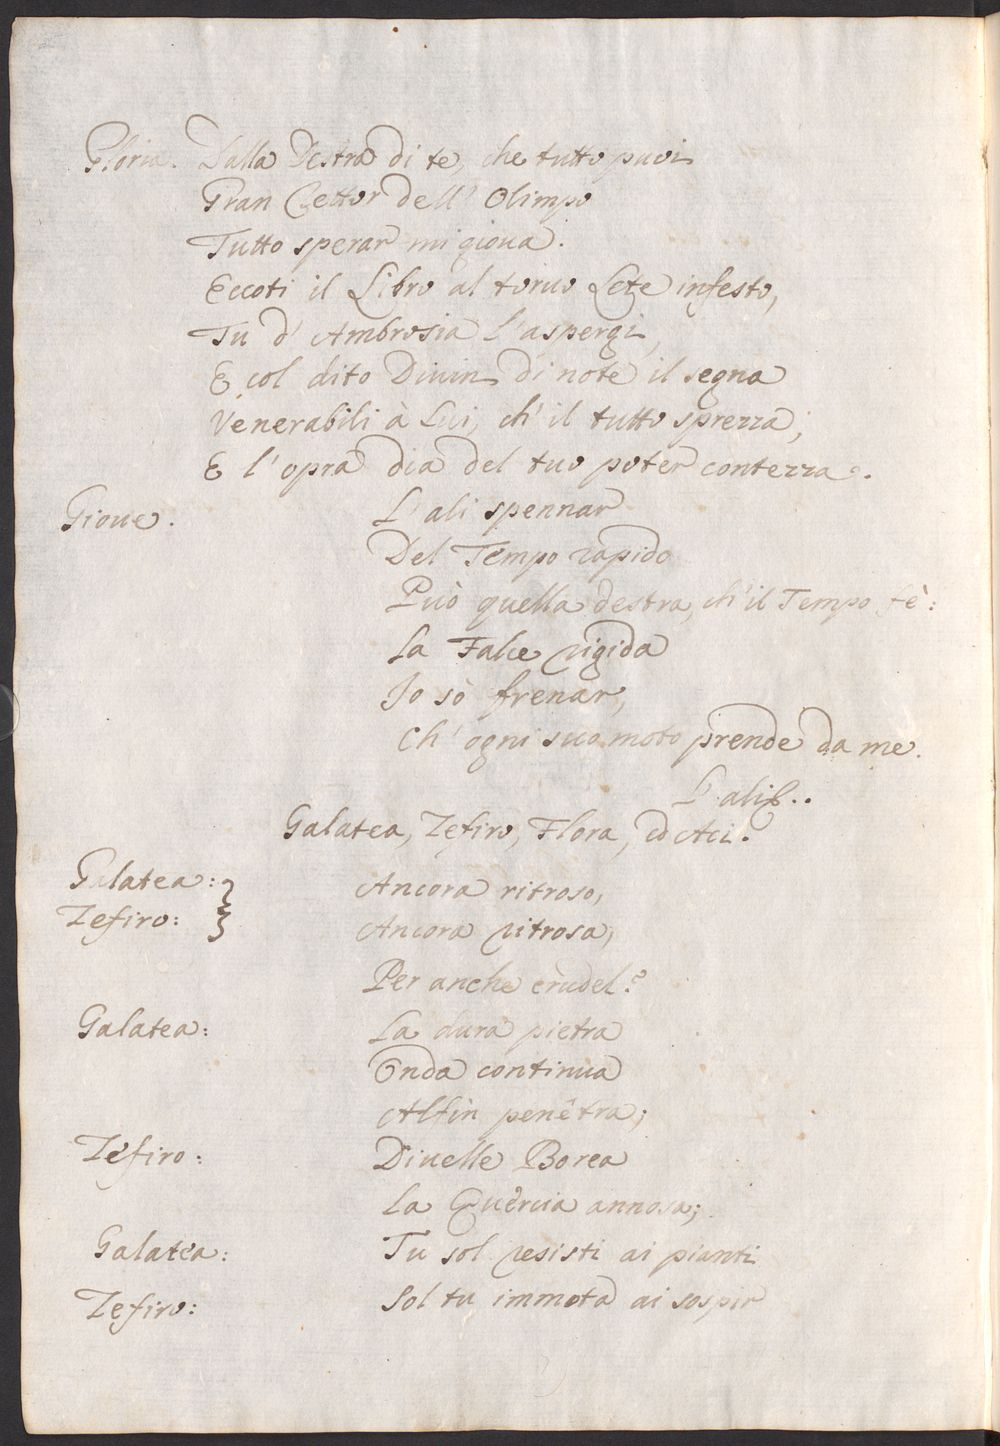 Gloria. Dalla Destra di te, che tutto puoi
Gran Rettor dell' Olimpo
Tutto sperar mi gioua.
Eccoti il Libro al toruo Lete infesto,
Tu d' Ambrosia l'aspergi,
E col dito Diuin di note il segna
Venerabili à Lui, ch' il tutto sprezza;
E l' opra dia del tuo poter contezza.
Gioue. L' ali spennar
Del Tempo rapido
Può quella destra, ch' il Tempo fè:
La Falce rigida
Io sò frenar,
Ch' ogni suo moto prende da me.
L' ali &..
Galatea, Zefiro, Flora, ed Aci.
Galatea: } Ancora ritroso,
Zefiro: } Ancora ritrosa,
Per anche crudel?
Galatea: La dura pietra
Onda continua
Alfin penêtra;
Zefiro: Diuelle Borea
La Quercia annosa;
Galatea: Tu sol resisti ai pianti
Zefiro: Sol tu immota ai sospir